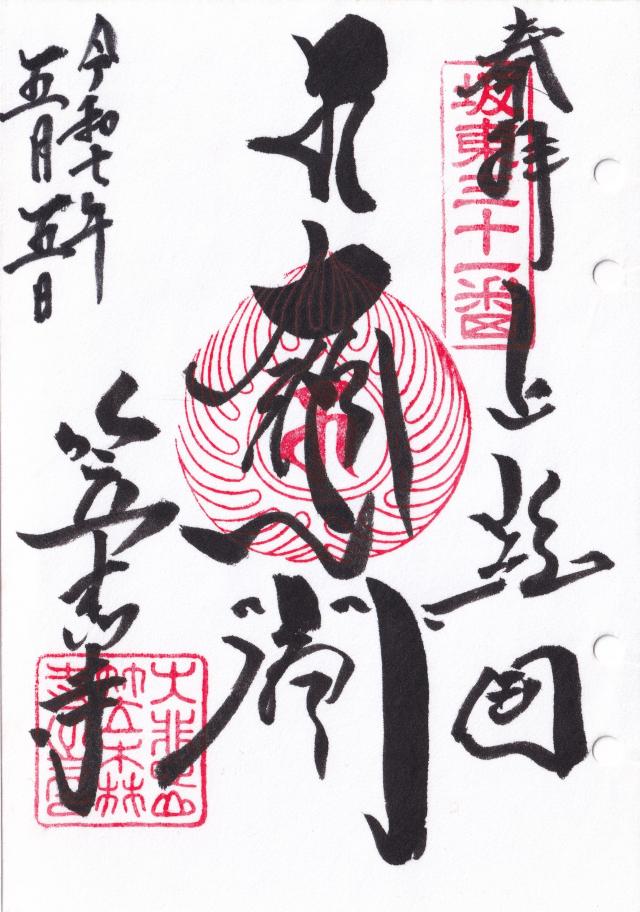 奉拝
坂東三十一番
上総国
大悲閣
笠森寺
令和七年
五月五日
大悲山
笠森